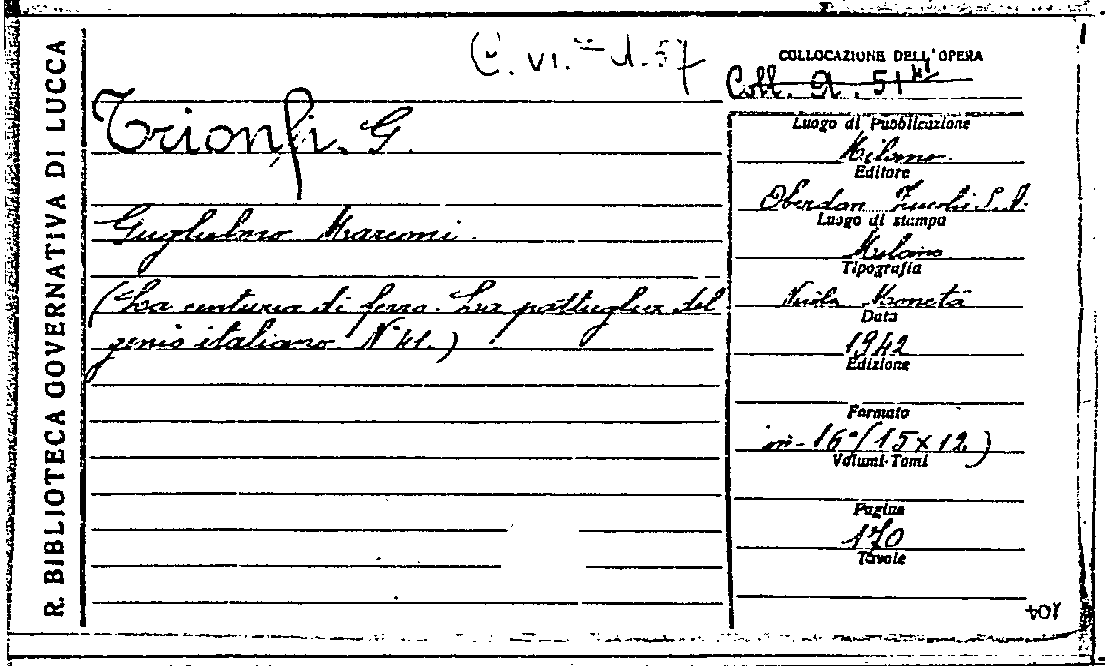 R. BIBLIOTECA GOVERNATIVA DI LUCCA
C. VI. d. 57
Trionfi. G.
Guglielmo Marconi.
(La centuria di ferro. La pattuglia del
genio italiano. N° 41.)
COLLOCAZIONE DELL'OPERA
Coll. A. 51
Luogo di Pubblicazione
Milano.
Editore
Oberdan Zucchi S. A.
Luogo di stampa
Milano
Tipografia
Moneta
Data
1942
Edizione
Formato
in-16° (15x12)
Volumi-Tomi
Pagine
170
Tavole
104